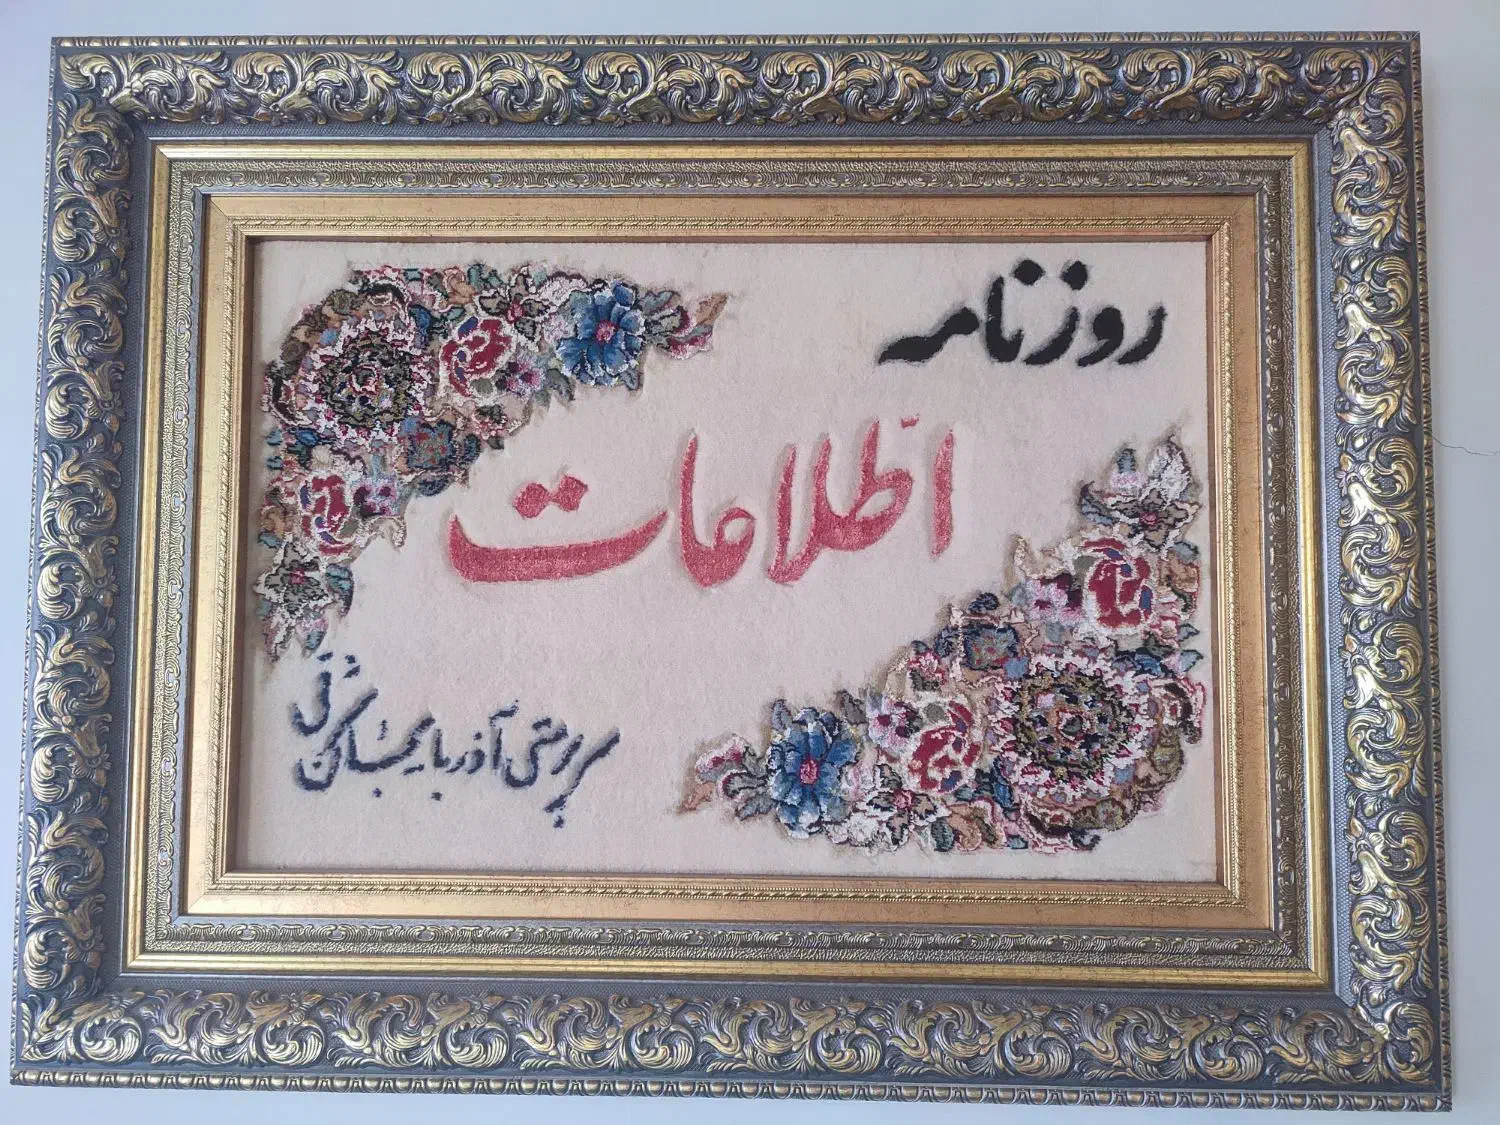 روزنامه
اطّلاعات
سرپرستی آذربایجان شرقی